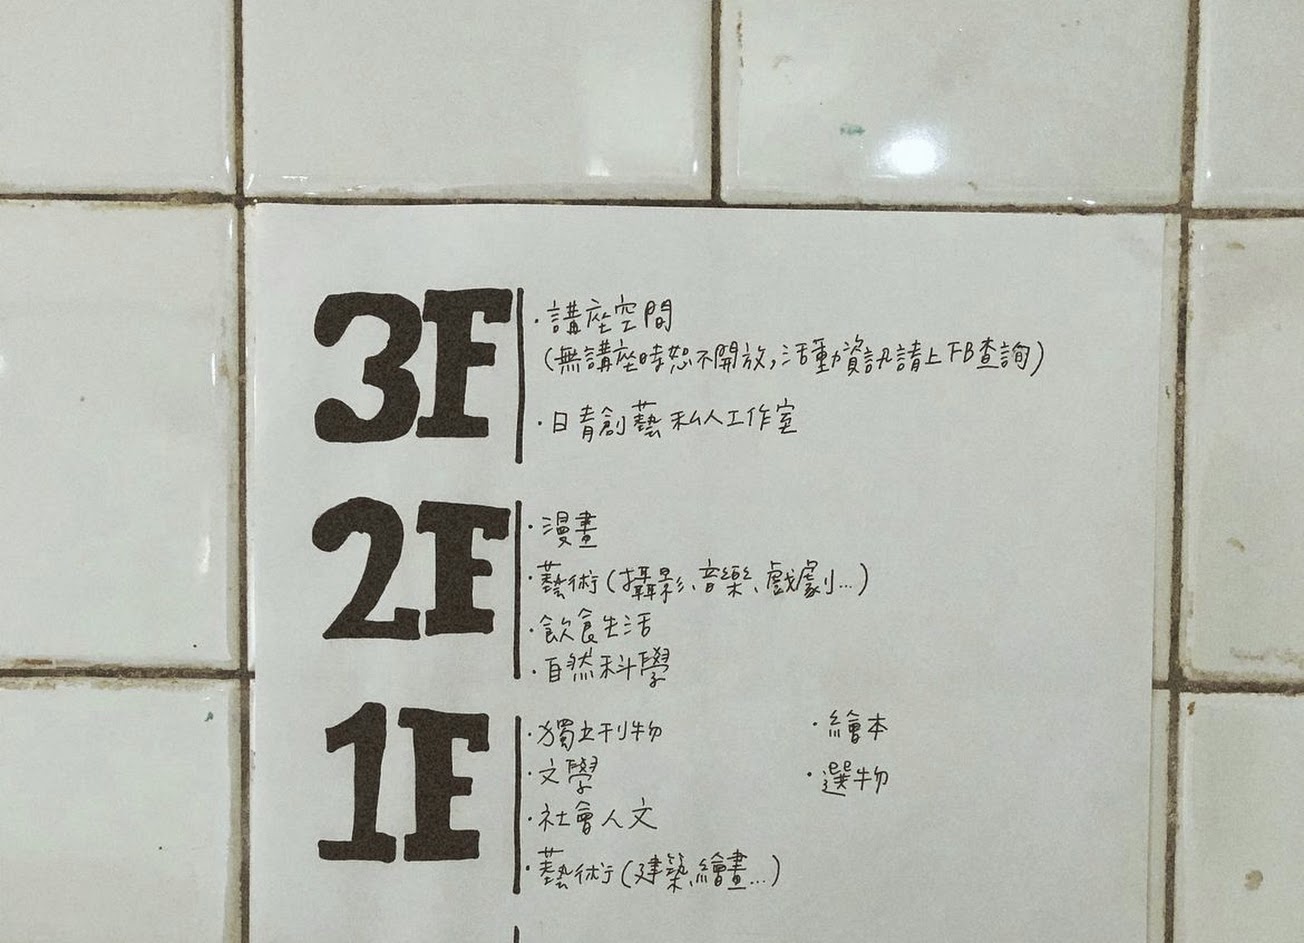 3F
·講座空間
(無講座時恕不開放,活動資訊請上FB查詢)
·日青創藝 私人工作室
2F
·漫畫
·藝術(攝影、音樂、戲劇...)
·飲食生活
·自然科學
1F
·獨立刊物
·文學
·社會人文
·藝術(建築、繪畫...)
·繪本
·選物